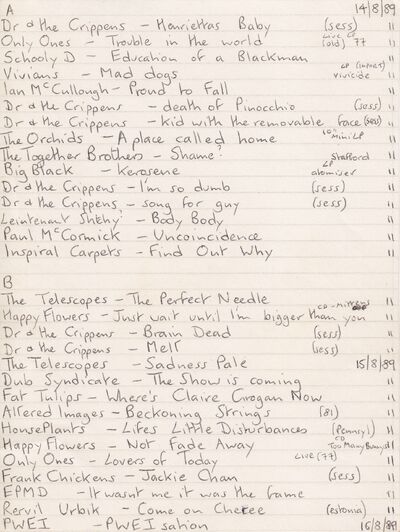 A 14/8/89
Dr & the Crippens - Henriettas Baby (sess) "
Only Ones - Trouble in the world Live CD (old) 77 "
Schooly D - Education of a Blackman "
Vivians - Mad dogs LP (import) vivicide "
Ian McCullough - Proud to Fall "
Dr & the Crippens - death of Pinocchio (sess) "
Dr & the Crippens - kid with the removable face (sess) "
The Orchids - A place called home 10" Mini LP "
The Together Brothers - Shame! Stafford "
Big Black - Kerosene LP atomiser "
Dr & the Crippens - I'm so dumb (sess) "
Dr & the Crippens - song for guy (sess) "
Leintenant - Body Body "
Paul McCormick - Uncoincidence "
Inspiral Carpets - Find Out Why "
B
The Telescopes - The Perfect Needle "
Happy Flowers - Just wait until I'm bigger than you CD - "
Dr & the Crippens - Brain Dead (sess) "
Dr & the Crippens - Melt (sess) "
The Telescopes - Sadness Pale 15/8/89
Dub Syndicate - The Show is coming "
Fat Tulips - Where's Claire Grogan Now "
Altered Images - Beckoning Strings (81) "
HousePlants - Lifes Little Disturbances (Pennsyl) "
Happy Flowers - Not Fade Away CD Too Many Bunnys "
Only Ones - Lovers of Today Live (77) "
Frank Chickens - Jackie Chan (sess) "
EPMD - It wasnt me it was the fame "
Rervil Urbik - Come on Cheree (estonia) "
PWEI - PWEI sation 16/8/89